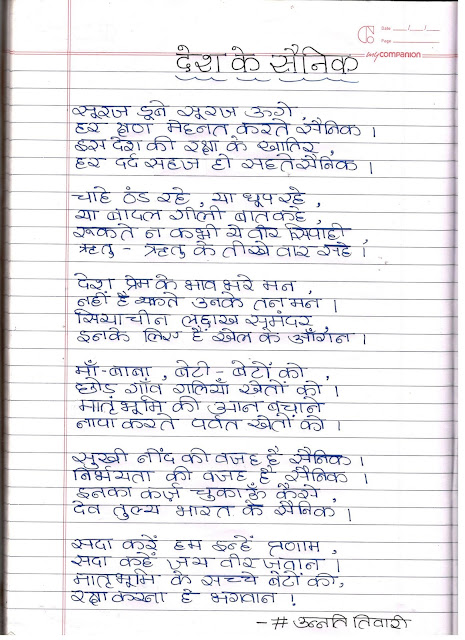 Date ___/___/___
Page ______
companion
देश के सैनिक
सूरज डूबे सूरज ऊगे,
हर क्षण मेहनत करते सैनिक।
इस देश की रक्षा के खातिर,
हर दर्द सहज ही सहते सैनिक।
चाहे ठंड रहे, या धूप रहे,
या बादल गीली बात कहे,
रूकते न कभी ये वीर सिपाही
ऋतु - ऋतु के तीखे वार सहे।
देश प्रेम के भाव भरे मन,
नहीं है थकते उनके तन मन।
सियाचीन लद्दाख सूमंदर,
इनके लिए है खेल के आँगन।
माँ-बाबा, बेटी - बेटों को,
छोड गाँव गलियाँ खेतों को।
मातृभूमि की आन बचाने
नापा करते पर्वत खेतों को।
सुखी नींद की वजह है सैनिक।
निर्भयता की वजह है सैनिक।
इनका कर्ज़ चुकाऊँ कैसे,
देव तुल्य भारत के सैनिक।
सदा करें हम इन्हें प्रणाम,
सदा कहें जय वीर जवान।
मातृभूमि के सच्चे बेटों की,
रक्षा करना हे भगवान!
- # उन्नति तिवारी